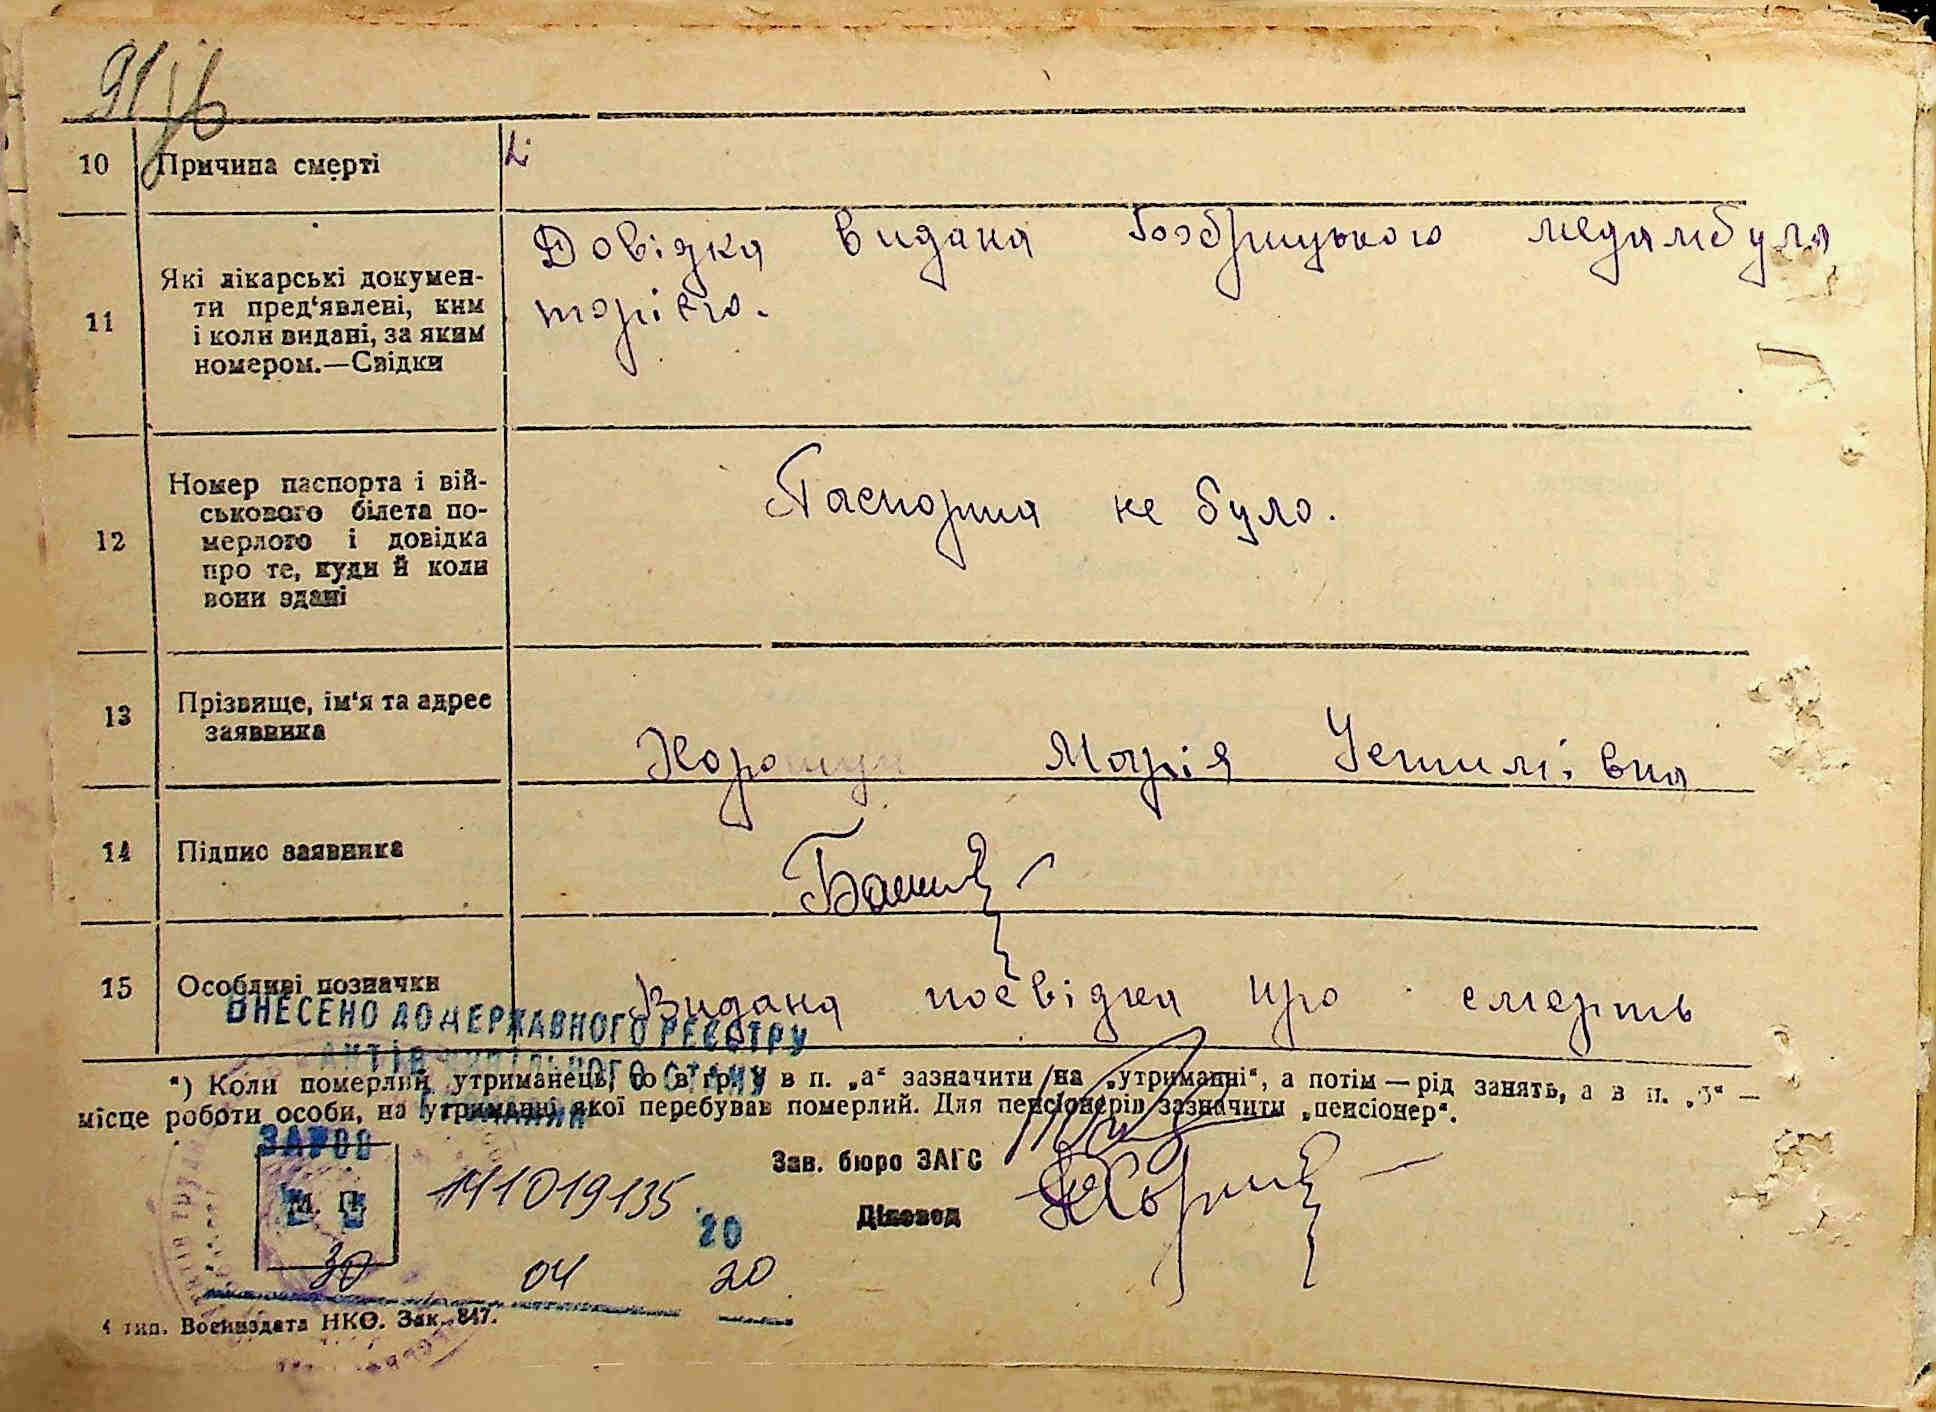 91
10 Причина смерті
11 Які лікарські докумен-
ти пред‘явлені, ким
і коли видані, за яким
номером.—Свідки
Довідка видана медамбула
торією.
12 Номер паспорта і вій-
ськового білета по-
мерлого і довідка
про те, куди й коли
вони здані
Паспорта не було.
13 Прізвище, ім‘я та адрес
заявника
Хорошун Марія
14 Підпис заявника
15 Особливі позначки
Видана посвідка про смерть
ВНЕСЕНО ДО ДЕРЖАВНОГО РЕЄСТРУ
АКТІВ ЦИВІЛЬНОГО СТАНУ
ГРОМАДЯН
*) Коли померлий утриманець, то в гр. у в п. „а“ зазначити „на утриманні“, а потім — рід занять, а в п. „б“ —
місце роботи особи, на утриманні якої перебував померлий. Для пенсіонерів зазначити „пенсіонер“.
Зав. бюро ЗАГС
М. П.
141019135
Діловод
20
30 04 20
4 тип. Воениздата НКО. Зак. 847.